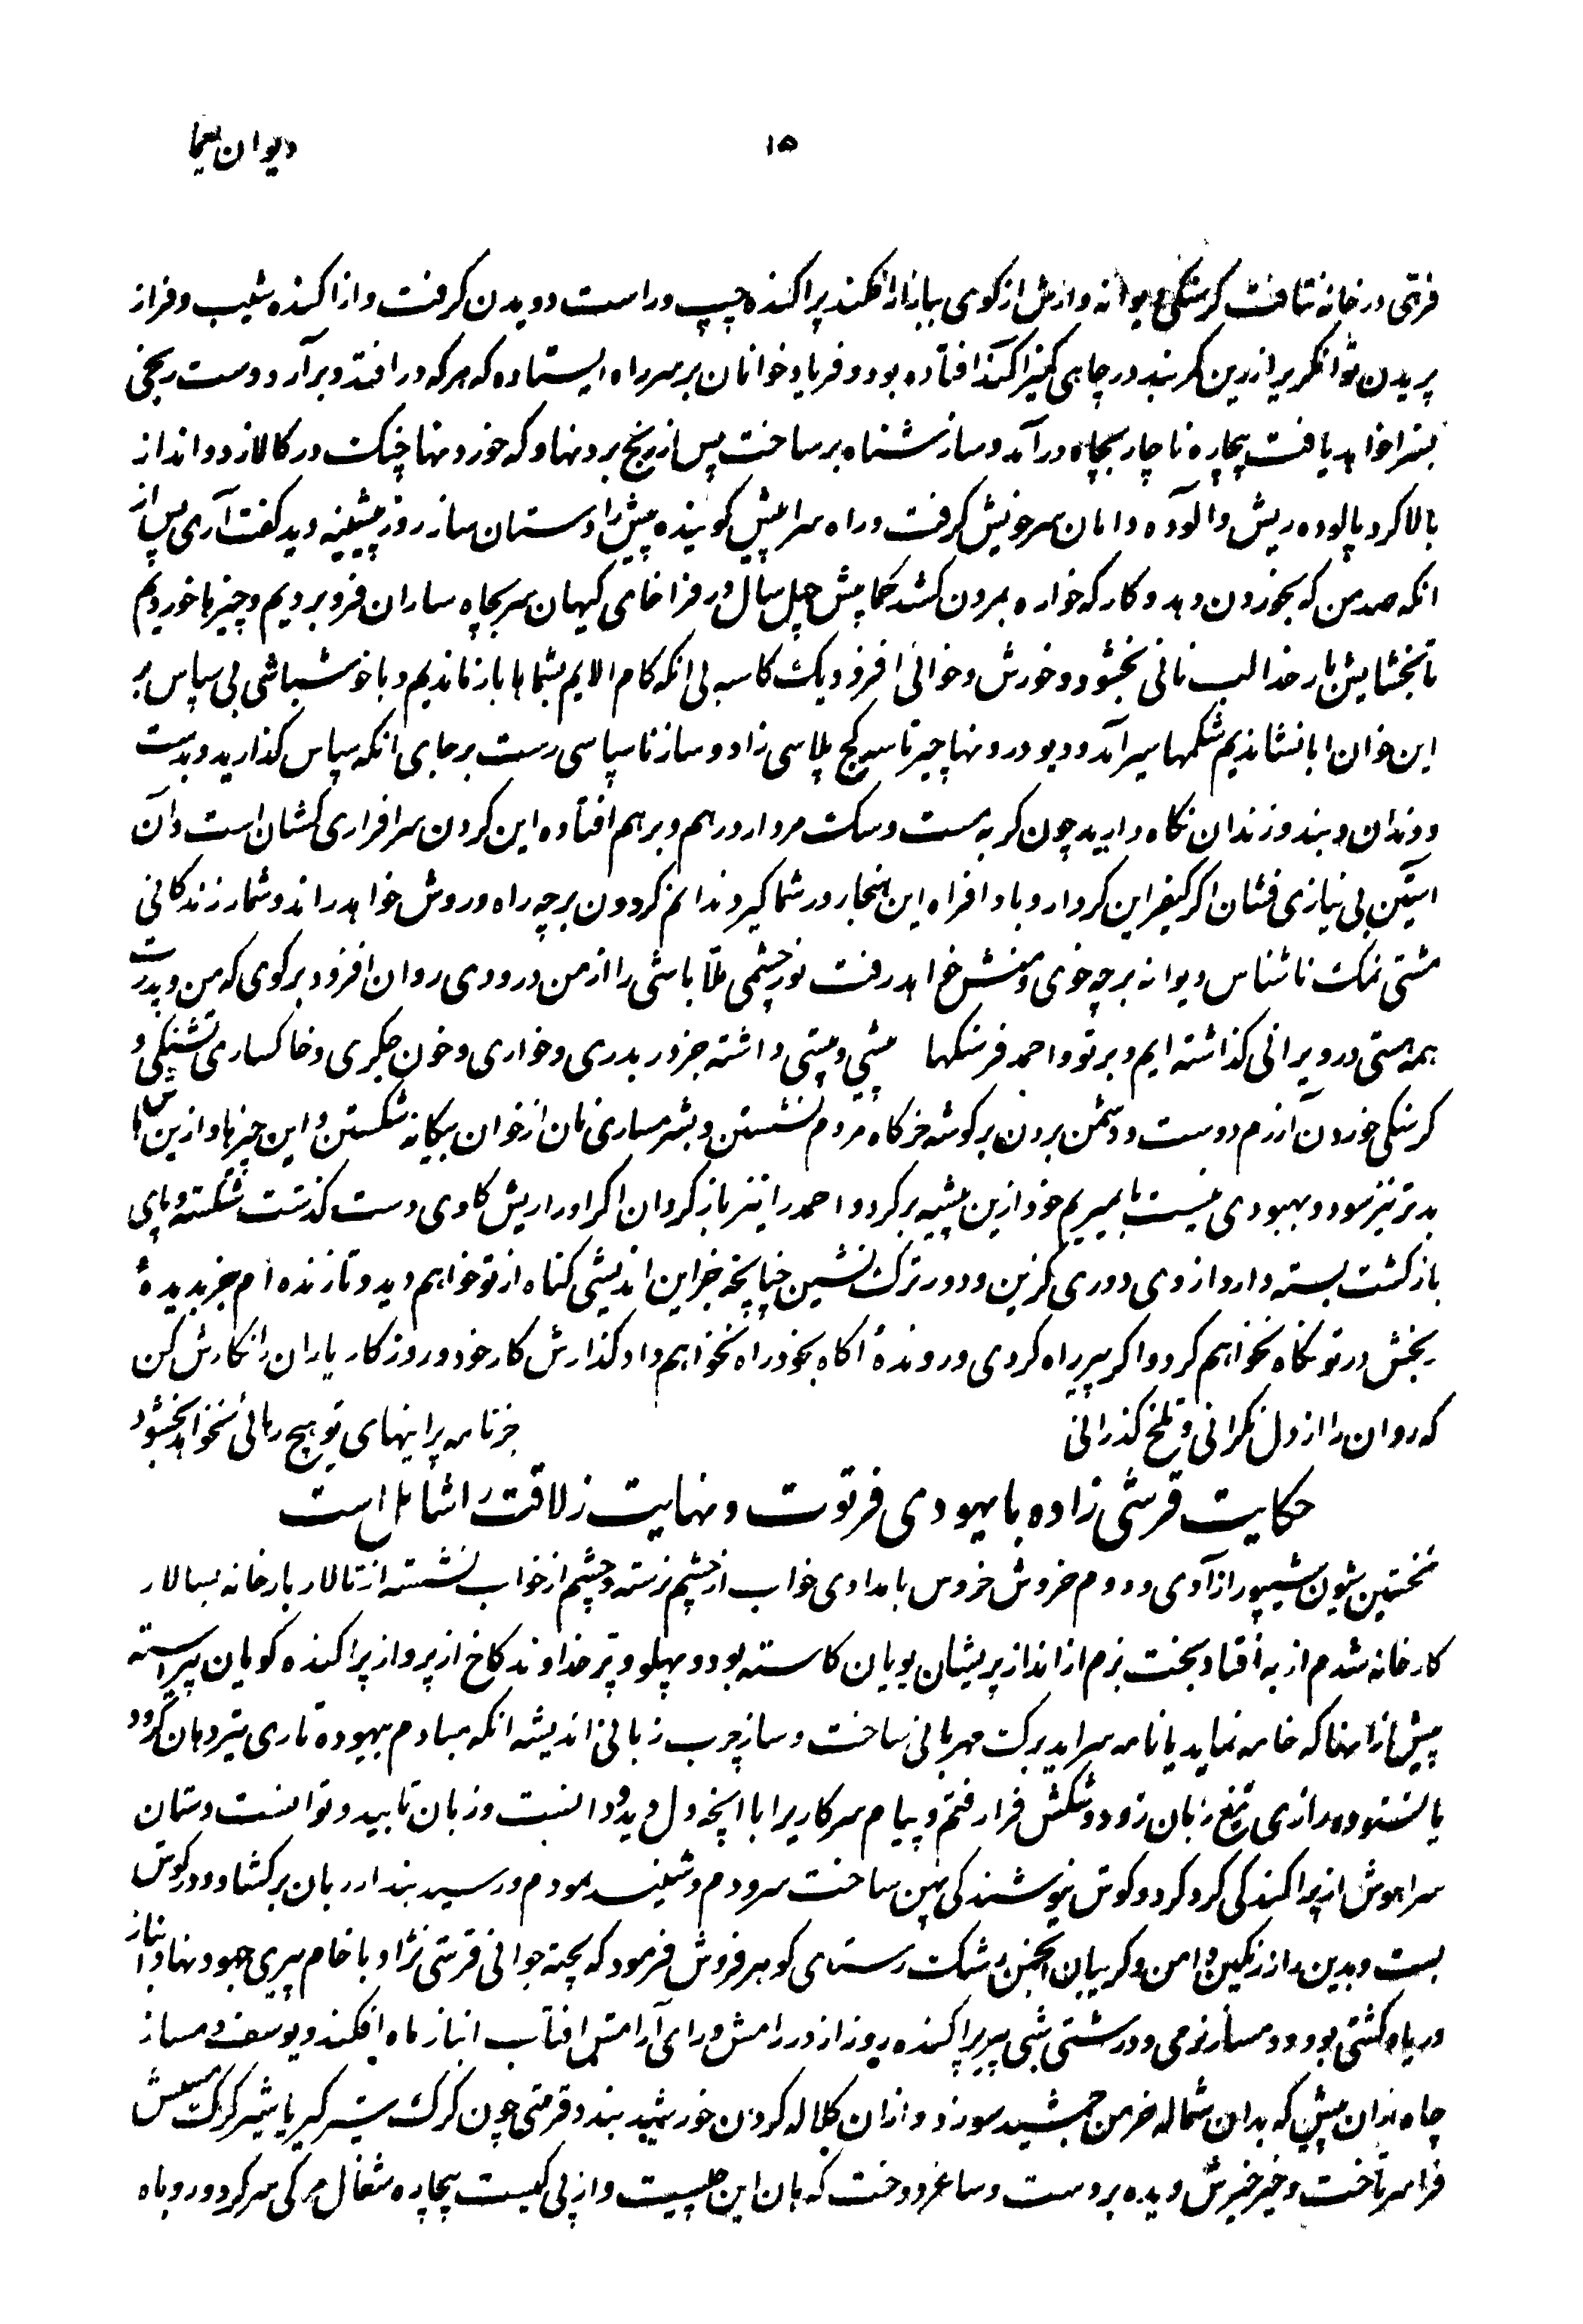 دیوان یغما
۱۵
فرتی در خانه نتافت گرسنگی دیوانه وارش از کوی ببازار افکند پراکنده چپ و راست دویدن گرفت و از اکنده شیب و فراز
پریدن توانگریرا زرین کمربند در چاهی کنیزاکند افتاده بود و فریاد خوانان بر سر راه ایستاده که هرکه در افتد و برآرد دست رنجی
بسزا خواهد یافت بیچاره ناچار بچاه درآمد و ساز شناه بر ساخت پس از رنج برد نهادکه خورد و نهاچنک در کالا زد و انداز
بالا کرد پالوده ریش و آلوده دامان سر خویش گرفت و راه سرا پیش گوینده پیش را دستان ساز روز پیشینه دید گفت آری پس از
انکه صد من که بخوردن دهد و کار که خواره برون کشد کمابیش چهل سال در فراخای کیهان سر بچاه ساران فرو بردیم و چیزها خوردیم
تا بخشایش بار خدا لب نانی بخشود و خورش و خوانی افزود یک کاسه بی انکه کام الایم بشماها باز ماندیم و با خوشباشی بی سپاس بر
این خوان ابا نشاندیم شکمها سیر آمد و دیو درونها چیر تا سر کج پلاسی زاد و ساز ناسپاسی رست بر جای انکه سپاس گذارید و بدست
و دندان و بند و زندان نگاه دارید چون گربه مست و سگ مردار در هم و برهم افتاده این گردن سرافرازی کشان است و آن
استین بی نیازی فشان اگر کیفر این کردار و باد افراه این هنجار در شما گیرد ندانم گردون بر چه راه و روش خواهد راند و شمار زندگانی
مشتی نمک ناشناس دیوانه بر چه خوی و منش خواهد رفت نور چشمی ملا باشی را از من درودی روان افزود بر گوی که من و پدرت
همه هستی در ویرانی گذاشته ایم و بر تو و احمد فرسنگها بیشی و پیشی داشته جز در بدری و خواری و خون جگری و خاکساری تشنگی و
گرسنگی خوردن آزرم دوست و دشمن بردن بر گوشه خرگاه مردم نشستن و بشرمساری نان از خوان بیگانه شکستن و این چیزها و ازین ساها
بدتر نیز سود و بهبودی نیست تا بمیریم خود ازین پیشه برگرد و احمد را نیز باز گردان اگر او را ریش گاوی دست گذشت شکسته و پای
بازگشت بسته دارد از وی دوری گزین و دور ترک نشین چنانچه جز این اندیشی گناه از تو خواهم دید و تا زنده ام جز بدیدهٔ
رنجش در تو نگاه نخواهم کرد و اگر پیر راه گردی و روندهٔ آگاه بخود راه نخواهم داد گذارش کار خود و روزگار یاران را نگارش کن
که روان را از دل نگرانی و تلخ گذرانی جز نامه پراینهای تو هیچ رهائی نخواهد بخشود
حکایت قرشی زاده با یهودی فرتوت و نهایت زلاقت را شامل است
نخستین شیون شیپور از آدی و دوم خروش خروس بامدادی خواب از چشم نرسته و چشم از خواب نشسته از تالار بارخانه بسالار
کارخانه شدم از به افتاد بخت بزم از انداز پریشان بویان کاسته بود و پهلو و بر خداوند کاخ از پرواز پراکنده گویان پیراسته
پیش از آنها که خامه نماید یا نامه سراید برگ مهربانی ساخت و ساز چرب زبانی اندیشه انکه مبادم بیهوده تاری تیر دهان گردد
یا نستوده رازی تیغ زبان زود و شکش فرا رفتم و پیام سرکاریرا با انچه دل دید و دانست و زبان تابید و توانست دستان
سرا هوش از پراکندگی گرد کرد و گوش نیوشندگی پهن ساخت سرودم و شنید نمودم و رسید بندار زبان برگشاد و در گوش
بست و بدین راز رنگین دامن و گریبان انجمن رشک رستهای گوهر فروش فرمود که پخته جوانی قرشی نژاد با خام پیری جهود نهاد انباز
دریا و کشتی بود و دمساز نرمی و درشتی شبی پیر پراکنده روز از در رامش و رای آرامش افتاب انباز ماه افکند و یوسف دمساز
چاه زان پیش که بدان شماله خرمن جمشید سوزد و ازان کلاله گردن خورشید بندد قرشی چون گرگ شیرگیر یا شیر گرگ
فرا سر تاخت و خیره خیرش دیده بر دوست و ساغر دوخت که هان این چیست و از پی کیست بیچاره شغال مرگی سر کرد و روباه